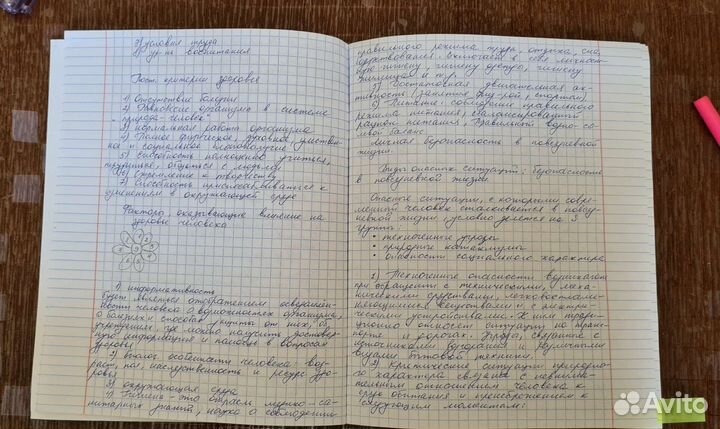 3) условия труда
4) ур-нь воспитания
Пост. критерии здоровья
1) Отсутствие болезни
2) Равновесие организма в системе
"природа-человек"
3) нормальная работа организма
4) Полное физическое, духовное, умствен-
ное и социальное благополучие
5) Способность полноценно учиться,
трудиться, общаться с людьми
6) Стремление к творчеству
7) Способность приспосабливаться к
изменениям в окружающей среде
Факторы, оказывающие влияние на
здоровье человека
1) информативность
будет являться отображением осведомлён-
ности человека о возможностях организма,
о болезнях и способах защиты от них, об
учреждениях, где можно получить достовер-
ную информацию и помощь в вопросах
здоровья
2) биолог. особенности человека: воз-
раст, пол, наследственность и ресурс здо-
ровья
3) окружающая среда
4) Гигиена - это отрасль медико-са-
нитарных знаний, наука о соблюдении
правильного режима труда, отдыха, сна,
бодрствования. включает в себя личност-
ную гигиену, гигиену одежды, гигиену
жилища и т.п.
5) Достаточная двигательная ак-
тивность (занятие физ-рой, спортом)
6) Питание: соблюдение правильного
режима питания, сбалансированный
рацион питания, правильный водно-со-
левой баланс
Личная безопасность в повседневной
жизни
Виды опасных ситуаций: безопасность
в повседневной жизни.
Опасные ситуации, с которыми совре-
менный человек сталкивается в повсед-
невной жизни, условно делятся на 3
группы:
• техногенные угрозы
• природные катаклизмы
• опасности социального характера
1) Техногенные опасности возникают
при обращении с техническими, меха-
ническими средствами, легковоспламе-
няющимися веществами и с электри-
ческими устройствами. К ним тради-
ционно относят ситуации на транс-
порте и дорогах. Угрозы, связанные с
источниками возгорания, различными
видами бытовой техники.
2) Критические ситуации природно-
го характера связаны с невнима-
тельным отношением человека к
среде обитания и пренебрежением к
следующим моментам:
Avito